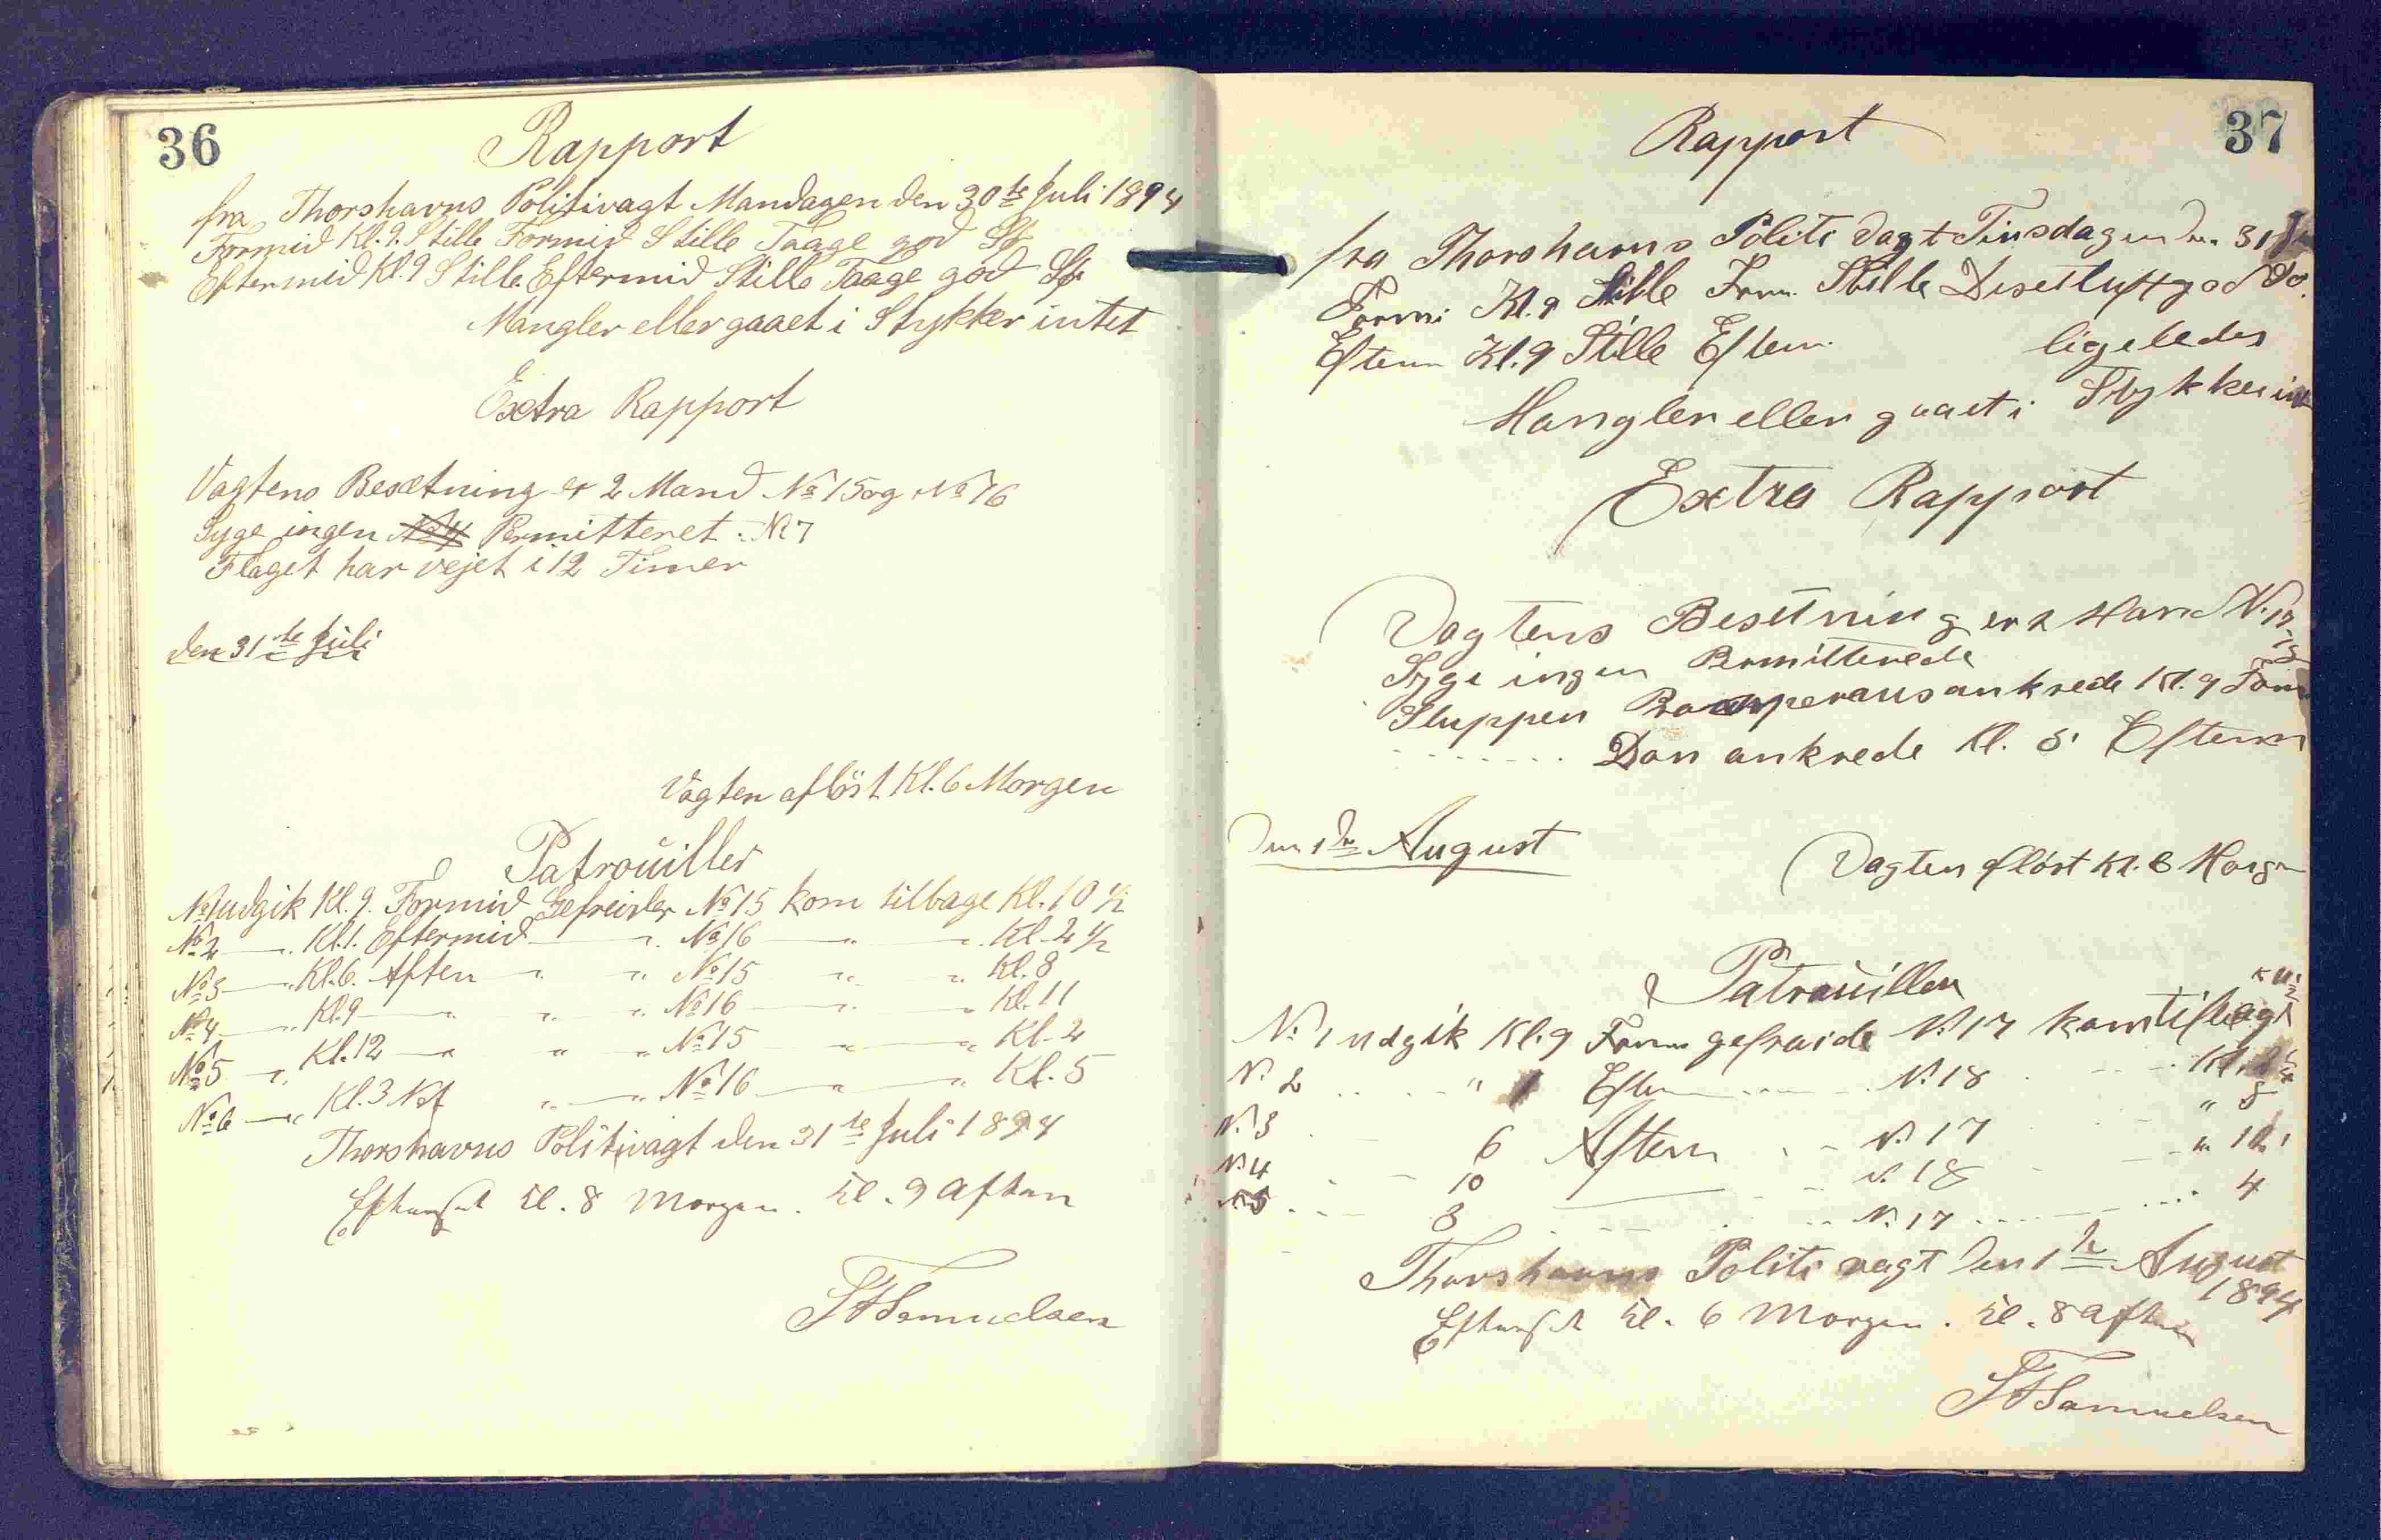 36
Rapport
fra Thorshavns Politivagt Mandagen den 30te Juli 1894
Formid Kl. 9. Stille Formid Stille Taage god
Eftermid Kl. 9 Stille Eftermid Stille Taage god
Mangler eller gaaet i Stykker intet
Extra Rapport
Vagtens Besætning er 2 Mand No 15 og No 16
Syge ingen No 4 Permitteret : No 7
Flaget har vejet i 12 Timer
den 31te Juli
Vagten aflöst Kl. 6 Morgen
Patrouiller
No 1 udgik Kl. 9. Formid Gefreider No 15 kom tilbage Kl. 10 1/2
No 2 — " Kl. 1. Eftermid — " No 16 — " — " Kl. 2 1/2
No 3 — " Kl. 6. Aften — " " No 15 " " Kl. 8
No 4 — " Kl. 9 — " " " No 16 — " " Kl. 11
No 5 — " Kl. 12 — " " " No 15 " — " Kl. 2
No 6 — " Kl. 3 Nat " — " No 16 — " — " Kl. 5
Thorshavns Politivagt den 31te Juli 1894
Efterset Kl. 8 Morgen. Kl. 9 Aften
Samuelsen
37
Rapport
fra Thorshavns Politi Vagt Tirsdagen den 31
Formi Kl. 9 Stille Form. Stille Disetluft god do.
Efterm Kl. 9 Stille Efterm. ligeledes
Mangler eller gaaet i Stykker
Extra Rapport
Vagtens Besetning er 2 Mand N. 17
18
Syge ingen Permitterede
Sluppen ankrede Kl. 9 Form
" Dan ankrede Kl. 5 Efterm
Den 1te August
Vagten aflöst Kl. 6 Morgn
Patrouiller
N. 1 udgik Kl. 9 Form gefraide N. 17 kom tilbage
N. 2 " 1 Efterm N. 18 Kl. 2
N. 3 6 Aftern N. 17 " 8
N. 4 10 — N. 18
N. 5 3 N. 17 4
Thorshavns Politi vagt den 1te August
1894
Efterset Kl. 6 Morgen. Kl. 8 Aften
Samuelsen